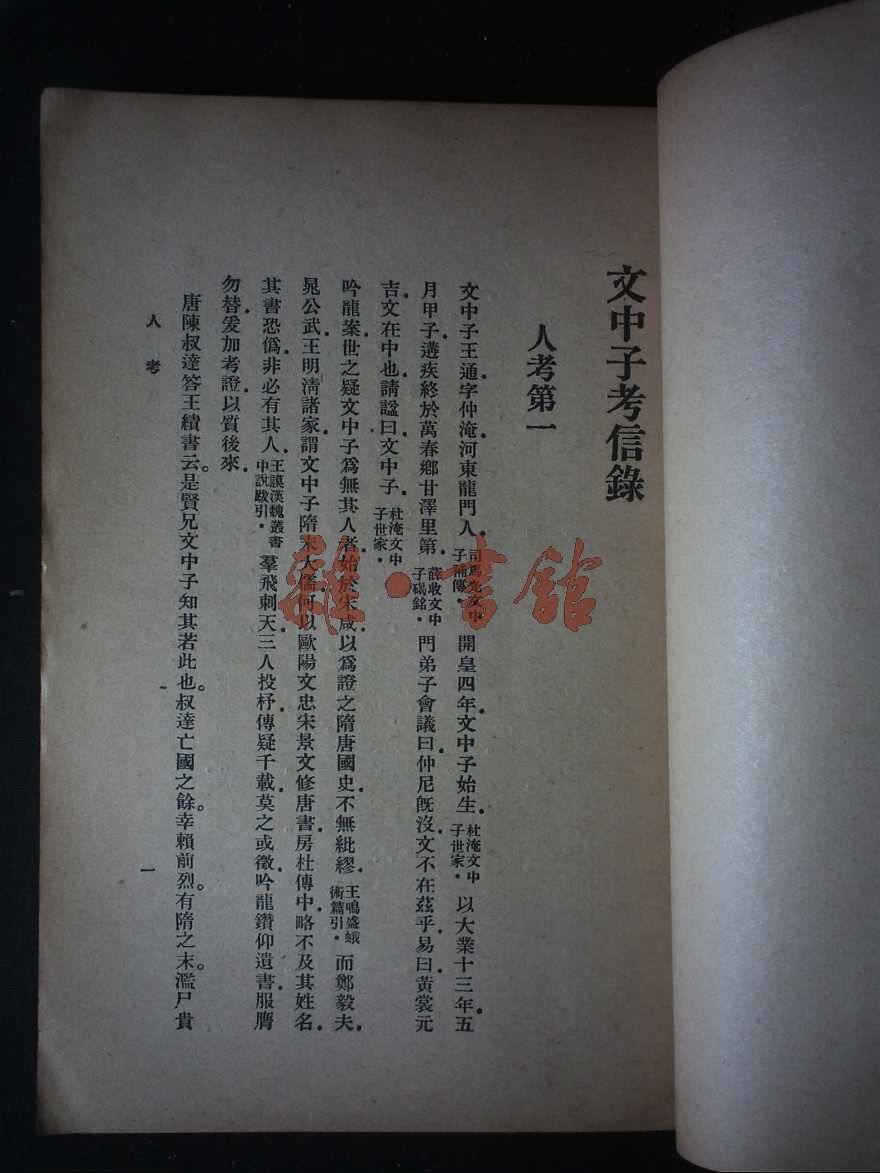 文中子考信錄
人考第一
文中子王通字仲淹河東龍門人。司馬光文中子補傳。開皇四年文中子始生。杜淹文中子世家。以大業十三年五
月甲子遘疾終於萬春鄉甘澤里第。薛收文中子碣銘。門弟子會議曰仲尼旣沒文不在茲乎易曰黃裳元
吉文在中也請諡曰文中子。杜淹文中子世家。
吟龍案世之疑文中子爲無其人者始於宋咸以爲證之隋唐國史不無紕繆。王鳴盛蛾術篇引。而鄭毅夫。
晁公武王明淸諸家謂文中子隋末大儒何以歐陽文忠宋景文修唐書房杜傳中略不及其姓名。
其書恐僞非必有其人。王謨漢魏叢書中說跋引。羣飛刺天三人投杼傳疑千載莫之或徵吟龍鑽仰遺書服膺
勿替爰加考證以質後來。
唐陳叔達答王績書云。是賢兄文中子知其若此也。叔達亡國之餘。幸賴前烈。有隋之末。濫尸貴
人考
一
雜·書館